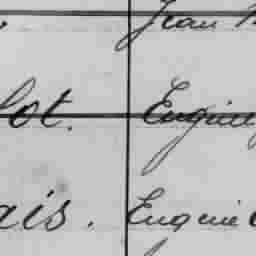 Jean
lot. Eugene
ais. Eugenie